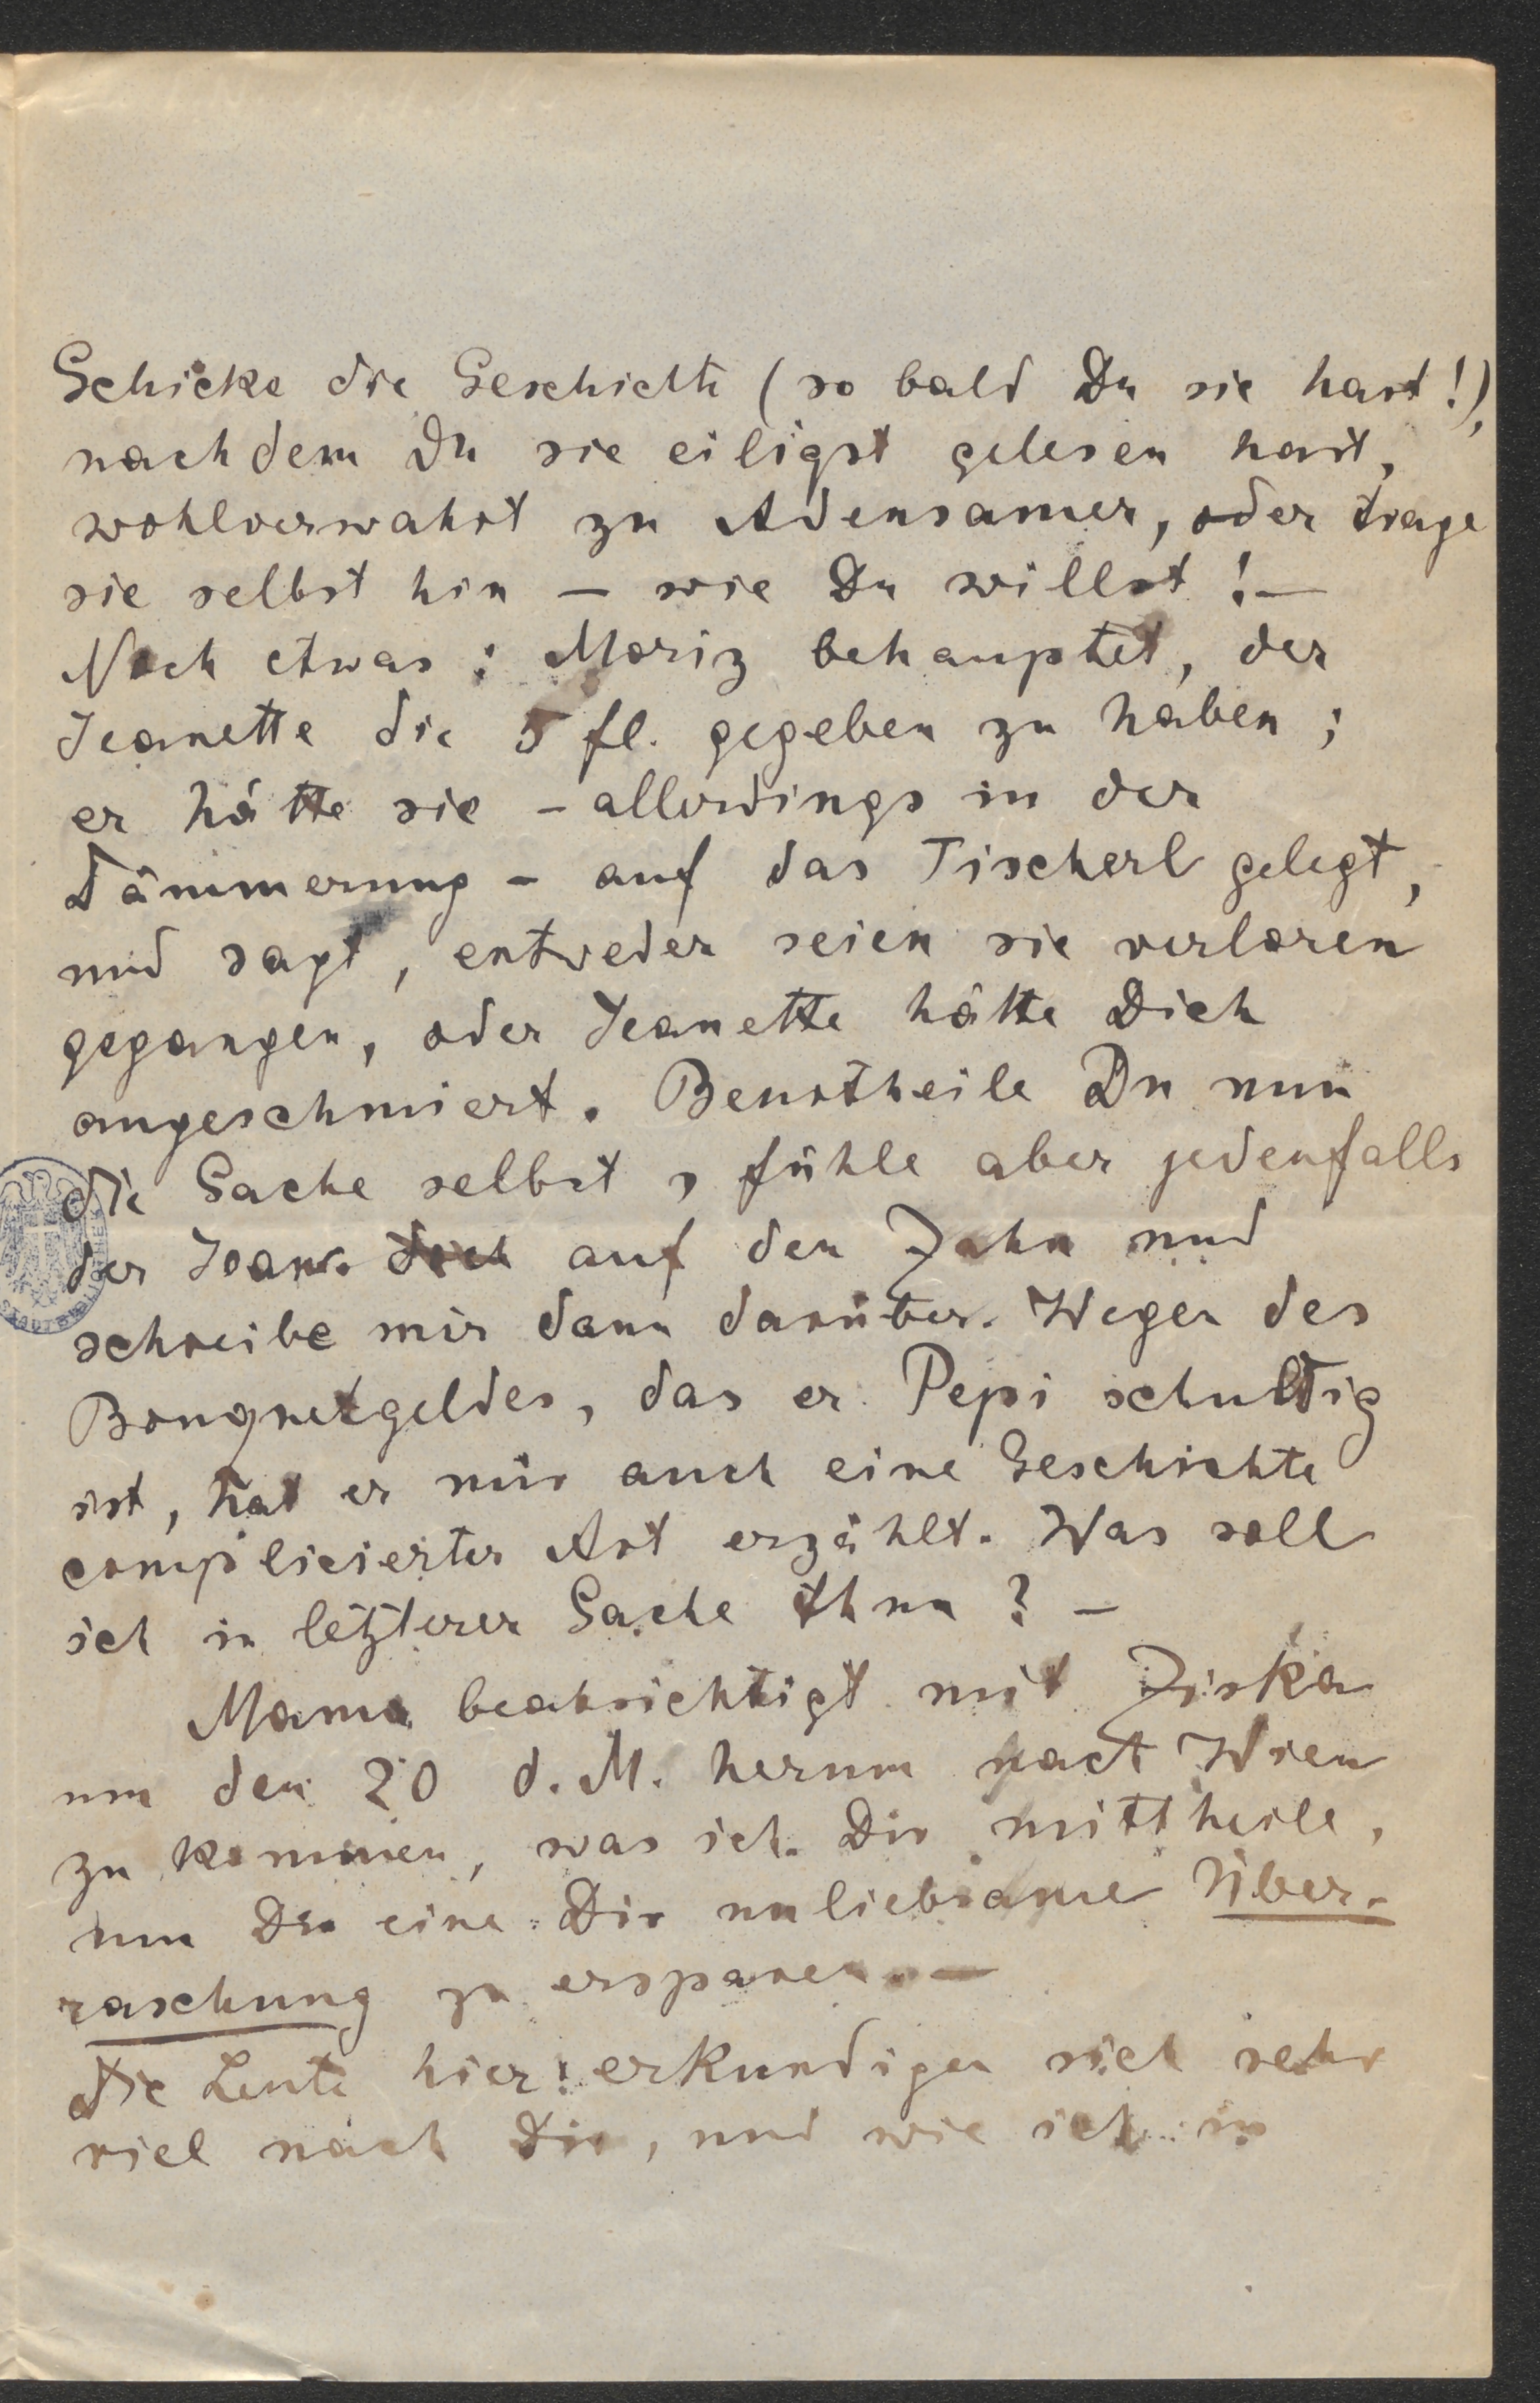 Schicke die Geschichte (so bald Du sie hast!),
nachdem Du sie eiligst gelesen hast,
wohlverwahrt zu Adensamer, oder trage
sie selbst hin – wie Du willst! –
Noch etwas: Moriz behauptet, der
Jeanette die 5 fl. gegeben zu haben;
er hätte sie – allerdings in der
Dämmerung – auf das Tischerl gelegt,
und sagt, entweder seien sie verloren
gegangen, oder Jeanette hätte Dich
angeschmiert. Beurtheile Du nun
die Sache selbst, fühle aber jedenfalls
der Jean. doch auf den Zahn und
schreibe mir dann darüber. Wegen des
Bouquetgeldes, das er Pepi schuldig
ist, hat er mir auch eine Geschichte
complicierter Art erzählt. Was soll
ich in letzterer Sache thun? –
Mama beabsichtigt mit Ziska
um den 20 d. M. herum nach Wien
zu kommen, was ich Dir mittheile,
um Dir eine Dir unliebsame Über-
raschung zu ersparen. –
Die Leute hier erkundigen sich sehr
viel nach Dir, und wie ich in